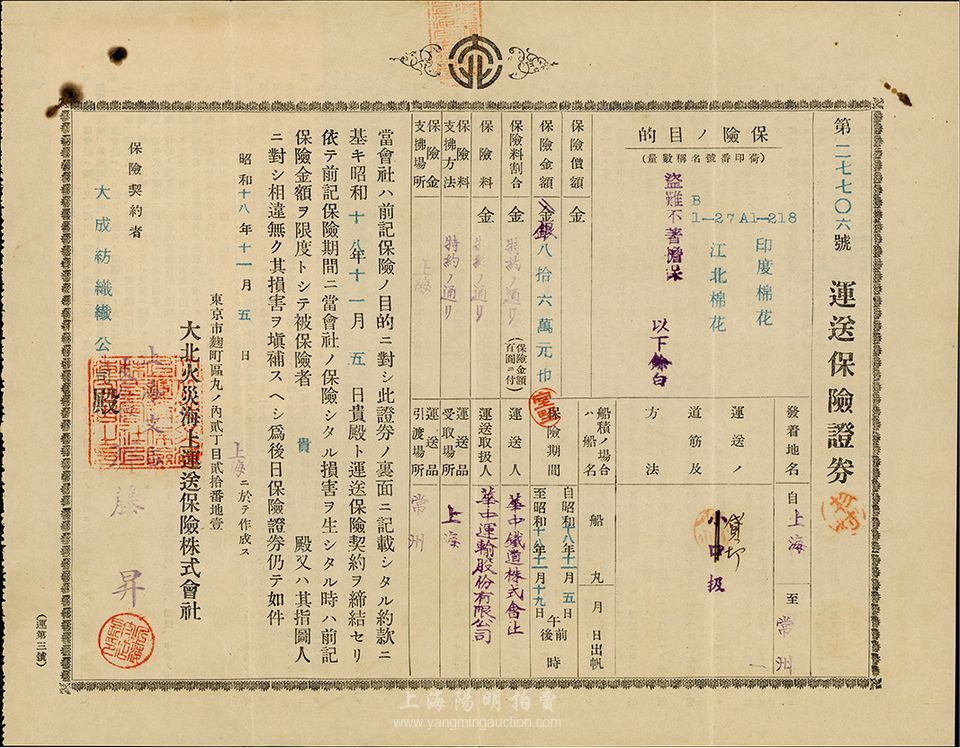 第二七七〇六號
運送保險證券
保險ノ目的
(荷印番號名稱數量)
B
1—27 A1—218
印度棉花
江北棉花
盜難不著擔保
以下餘白
發着地名
自上海至常州
運送ノ
道筋及
方法
貸切
小口扱
船積ノ場合
ハ船名
船
丸
月
日出帆
保險價額
金
保險金額
金
銀八拾六萬元也
保險料割合
金
特約ノ通リ
(保險金額百圓ニ付)
保險料
金
特約ノ通リ
保險料
支拂方法
特約ノ通リ
保險金
支拂場所
上海
保險期間
自昭和十八年十一月五日
至昭和十八年十一月十九日
午前
午後
時
運送人
華中鐵道株式會社
運送取扱人
華中運輸股份有限公司
運送品
受取場所
上海
運送品
引渡場所
常州
當會社ハ前記保險ノ目的ニ對シ此證券ノ裏面ニ記載シタル約款ニ
基キ昭和十八年十一月五日貴殿ト運送保險契約ヲ締結セリ
依テ前記保險期間ニ當會社ノ保險シタル損害ヲ生シタル時ハ前記
保險金額ヲ限度トシテ被保險者貴殿又ハ其指圖人
ニ對シ相違無ク其損害ヲ塡補スヘシ爲後日保險證券仍テ如件
昭和十八年十一月五日
上海ニ於テ作成ス
東京市麴町區丸ノ內貳丁目貳拾番地壹
大北火災海上運送保險株式會社
昇
保險契約者
大成紡織公司殿
(運第三號)
上海陽明拍賣
www.yangmingauction.com